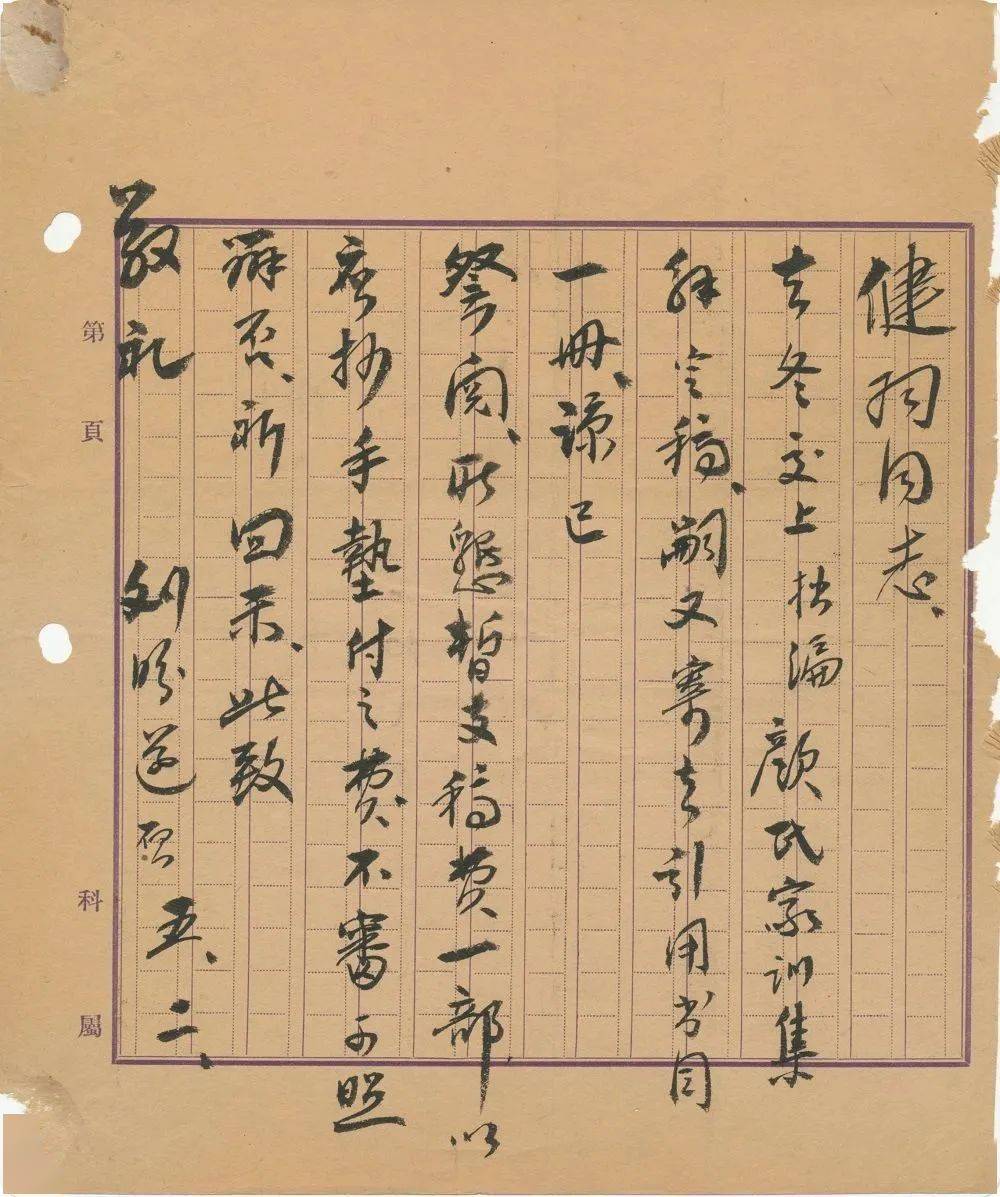 健羽同志、
去冬交上拙编顔氏家训集
解定稿、嗣又寄去引用书目
一册、谅已
詧阅、所懇暂支稿费一部以
应抄手墊付之费、不審可照
办否、祈回示、此致
敬礼
刘盼遂 启 五、二、
第 頁 科 屬